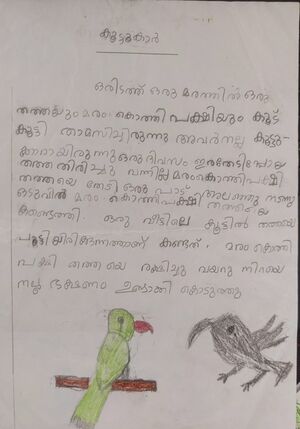 കൂട്ടുകാർ
ഒരിടത്ത് ഒരു മരത്തിൽ ഒരു
തത്തയും മരംകൊത്തി പക്ഷിയും കൂട്
കൂട്ടി താമസിച്ചിരുന്നു അവർ നല്ല കൂട്ടു-
കാരായിരുന്നു ഒരു ദിവസം ഇരതേടി പോയ
തത്ത തിരിച്ചു വന്നില്ല മരംകൊത്തിപക്ഷി
തത്തയെ തേടി ഒരു പാട് അലഞ്ഞു നടന്നു
ഒടുവിൽ മരം കൊത്തിപക്ഷി തത്തയെ
കണ്ടെത്തി. ഒരു വീട്ടിലെ കൂട്ടിൽ തത്തയെ
പൂട്ടിയിരിക്കുന്നതാണ് കണ്ടത്. മരം കൊത്തി
പക്ഷി തത്തയെ രക്ഷിച്ചു വയറു നിറയെ
നല്ല ഭക്ഷണം ഉണ്ടാക്കി കൊടുത്തു